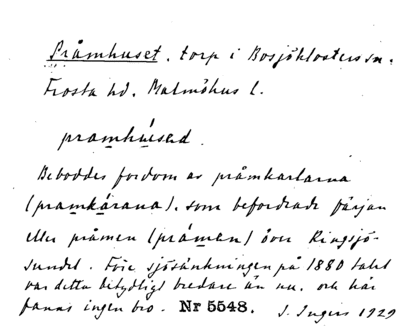 Pråmhuset. torp i Bosjöklosters sn.
Frosta hd. Malmöhus l.
pramhúsed.
Beboddes fordom av pråmkarlarna
(pramkárana), som befordrade färjan
eller pråmen (práman) över Ringsjö-
sundet. Före sjösänkningen på 1880 talet
var detta betydligt bredare än nu, och här
fanns ingen bro. Nr 5548. S. Ingers 1929